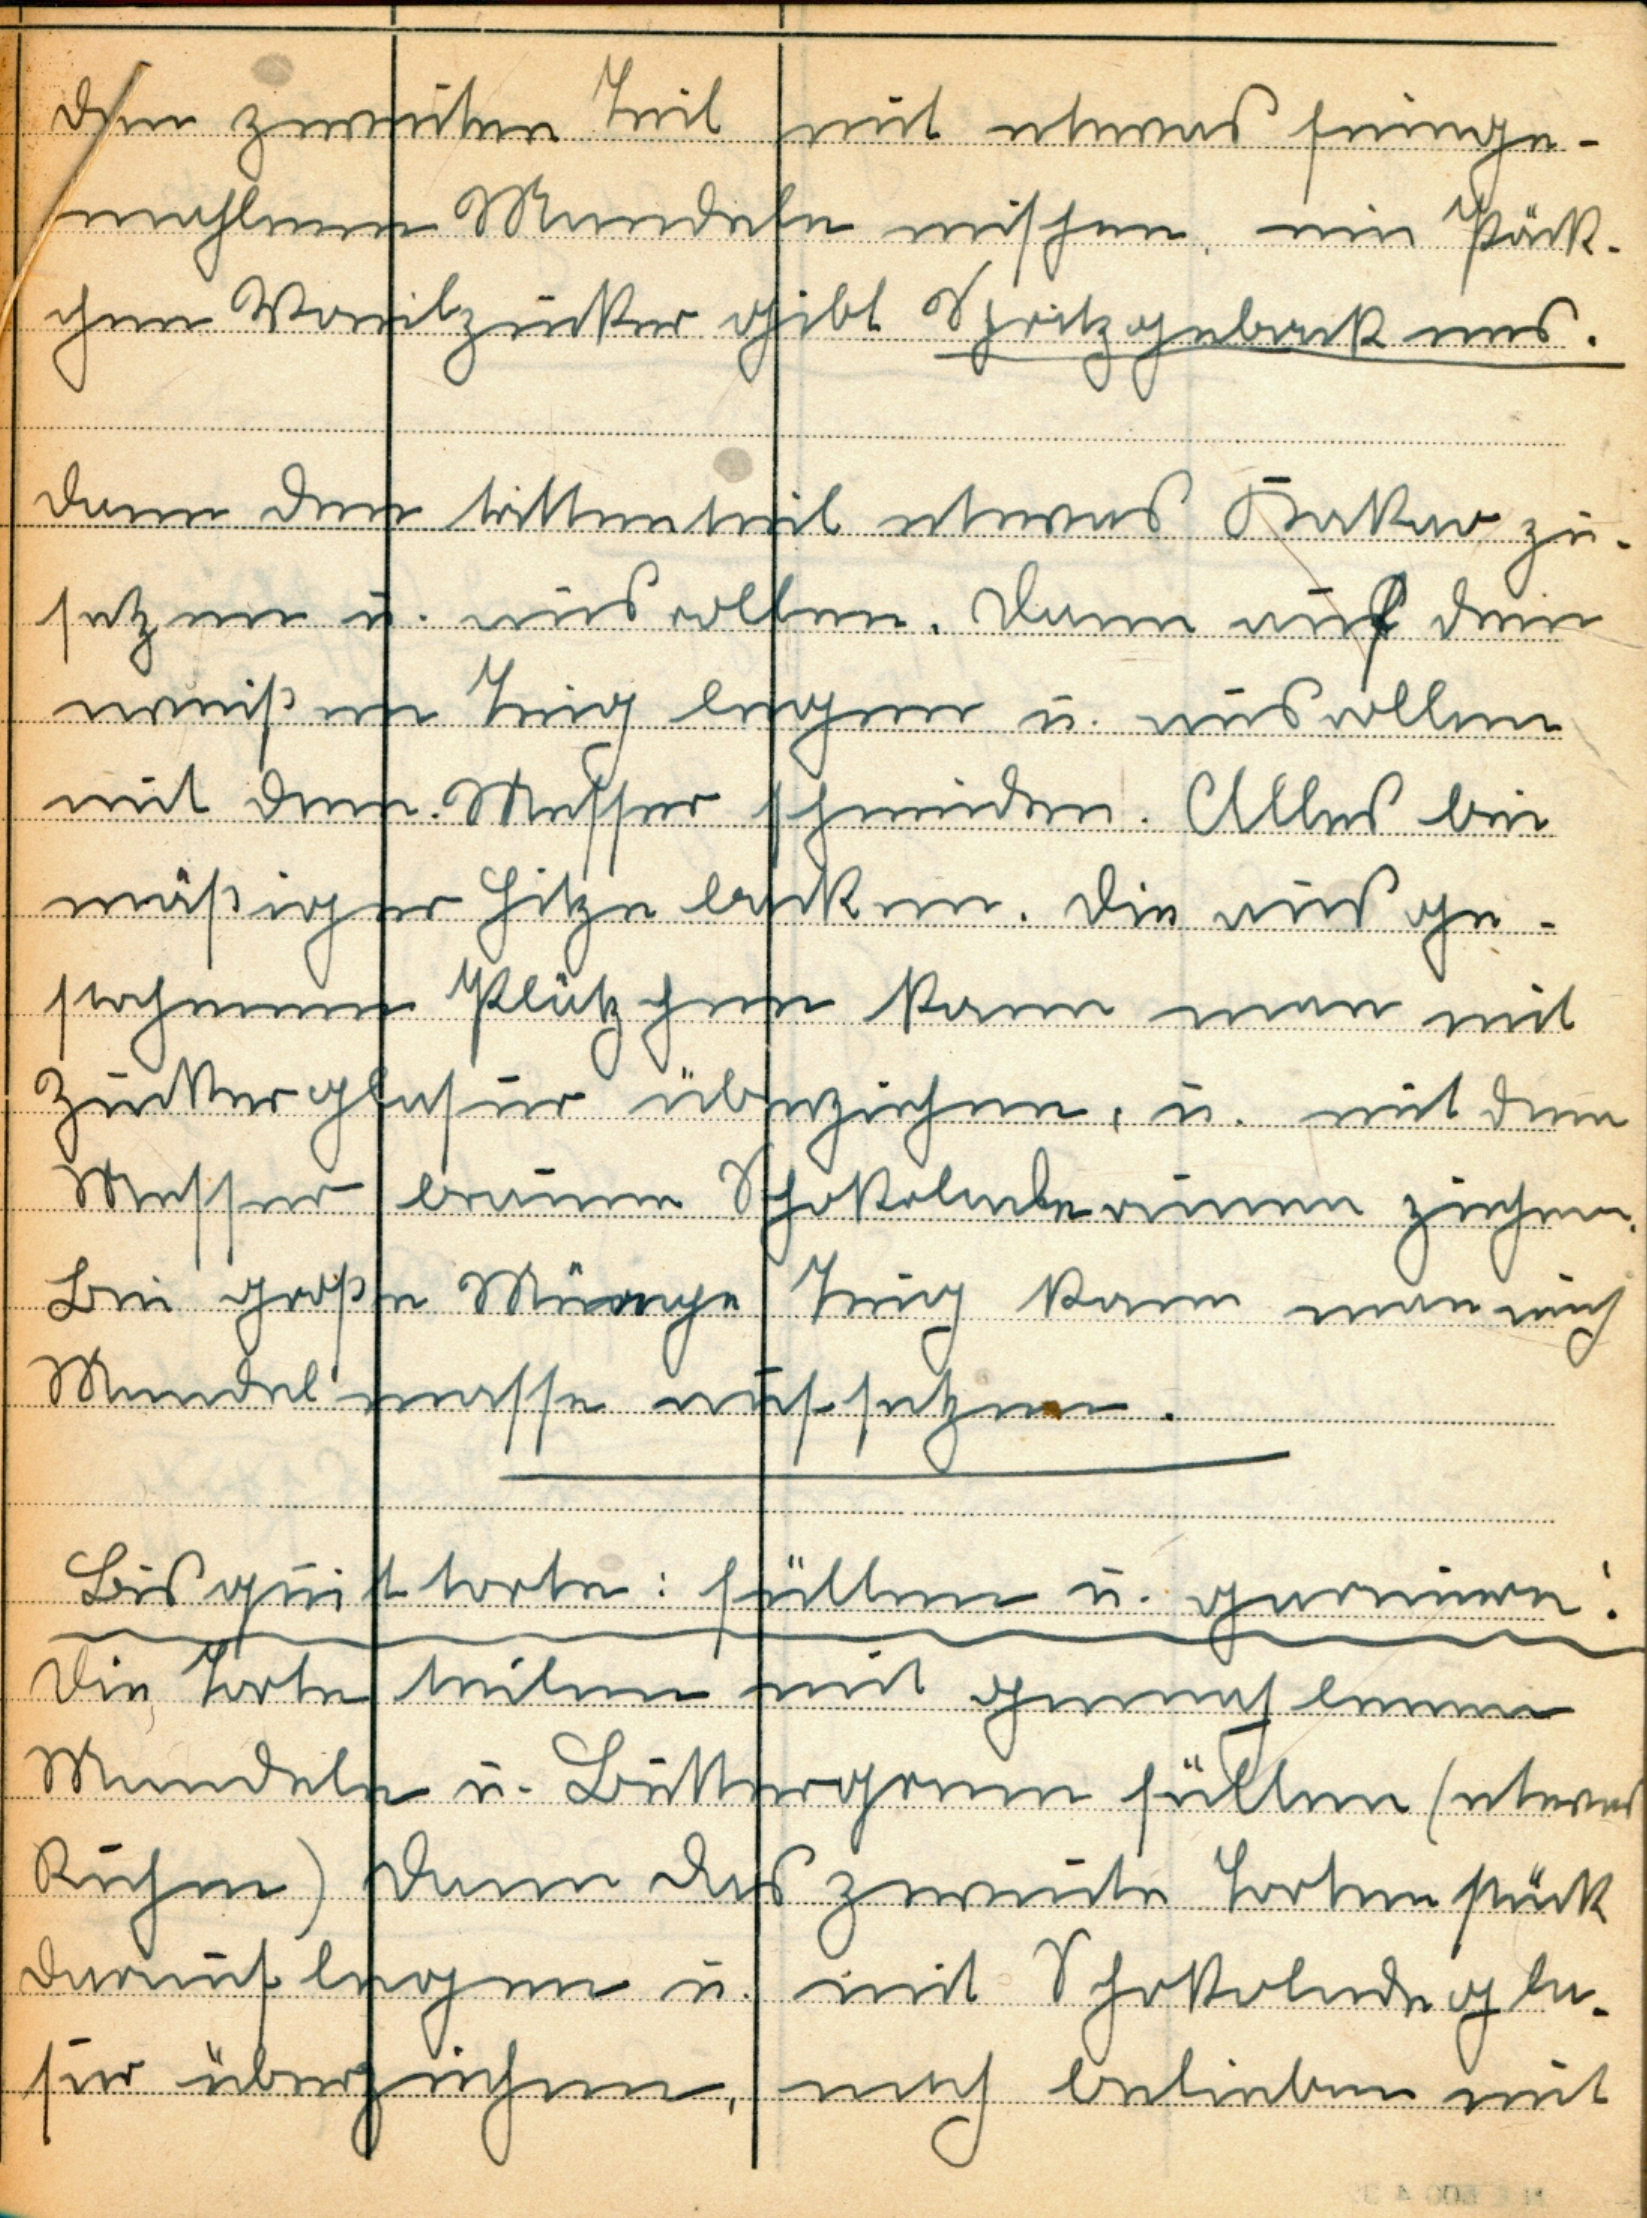 den zweiten Teil mit etwas feinge-
mahlenen Mandeln mischen, ein Päck-
chen Vanilzucker gibt Spritzgeback aus.
dann den drittenteil etwas Kakao zu-
setzen u. ausrollen. Dann auf den
weißen Teig legen u. ausrollen
mit dem Messer schneiden. Alles bei
mäßiger Hitze backen. Die ausge-
stochenen Plätzchen kann man mit
Zuckerglasur überziehen, u. mit dem
Messer braune Schokolade rinnen ziehen.
Bei große Menge Teig kann man auch
Mandelmasse aufsetzen.
Bisquittorte: füllen u. garnieren:
Die Torte teilen mit gemahlenen
Mandeln u. Buttercreme füllen (etwas
Kirschen) dann das zweite Tortenstück
darauf legen u. mit Schokoladegla-
sur überziehen, nach belieben mit